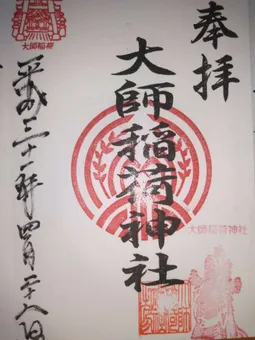 奉拝
大師稲荷神社
大師稲荷神社
平成三十一年四月二十八日
大師稲荷